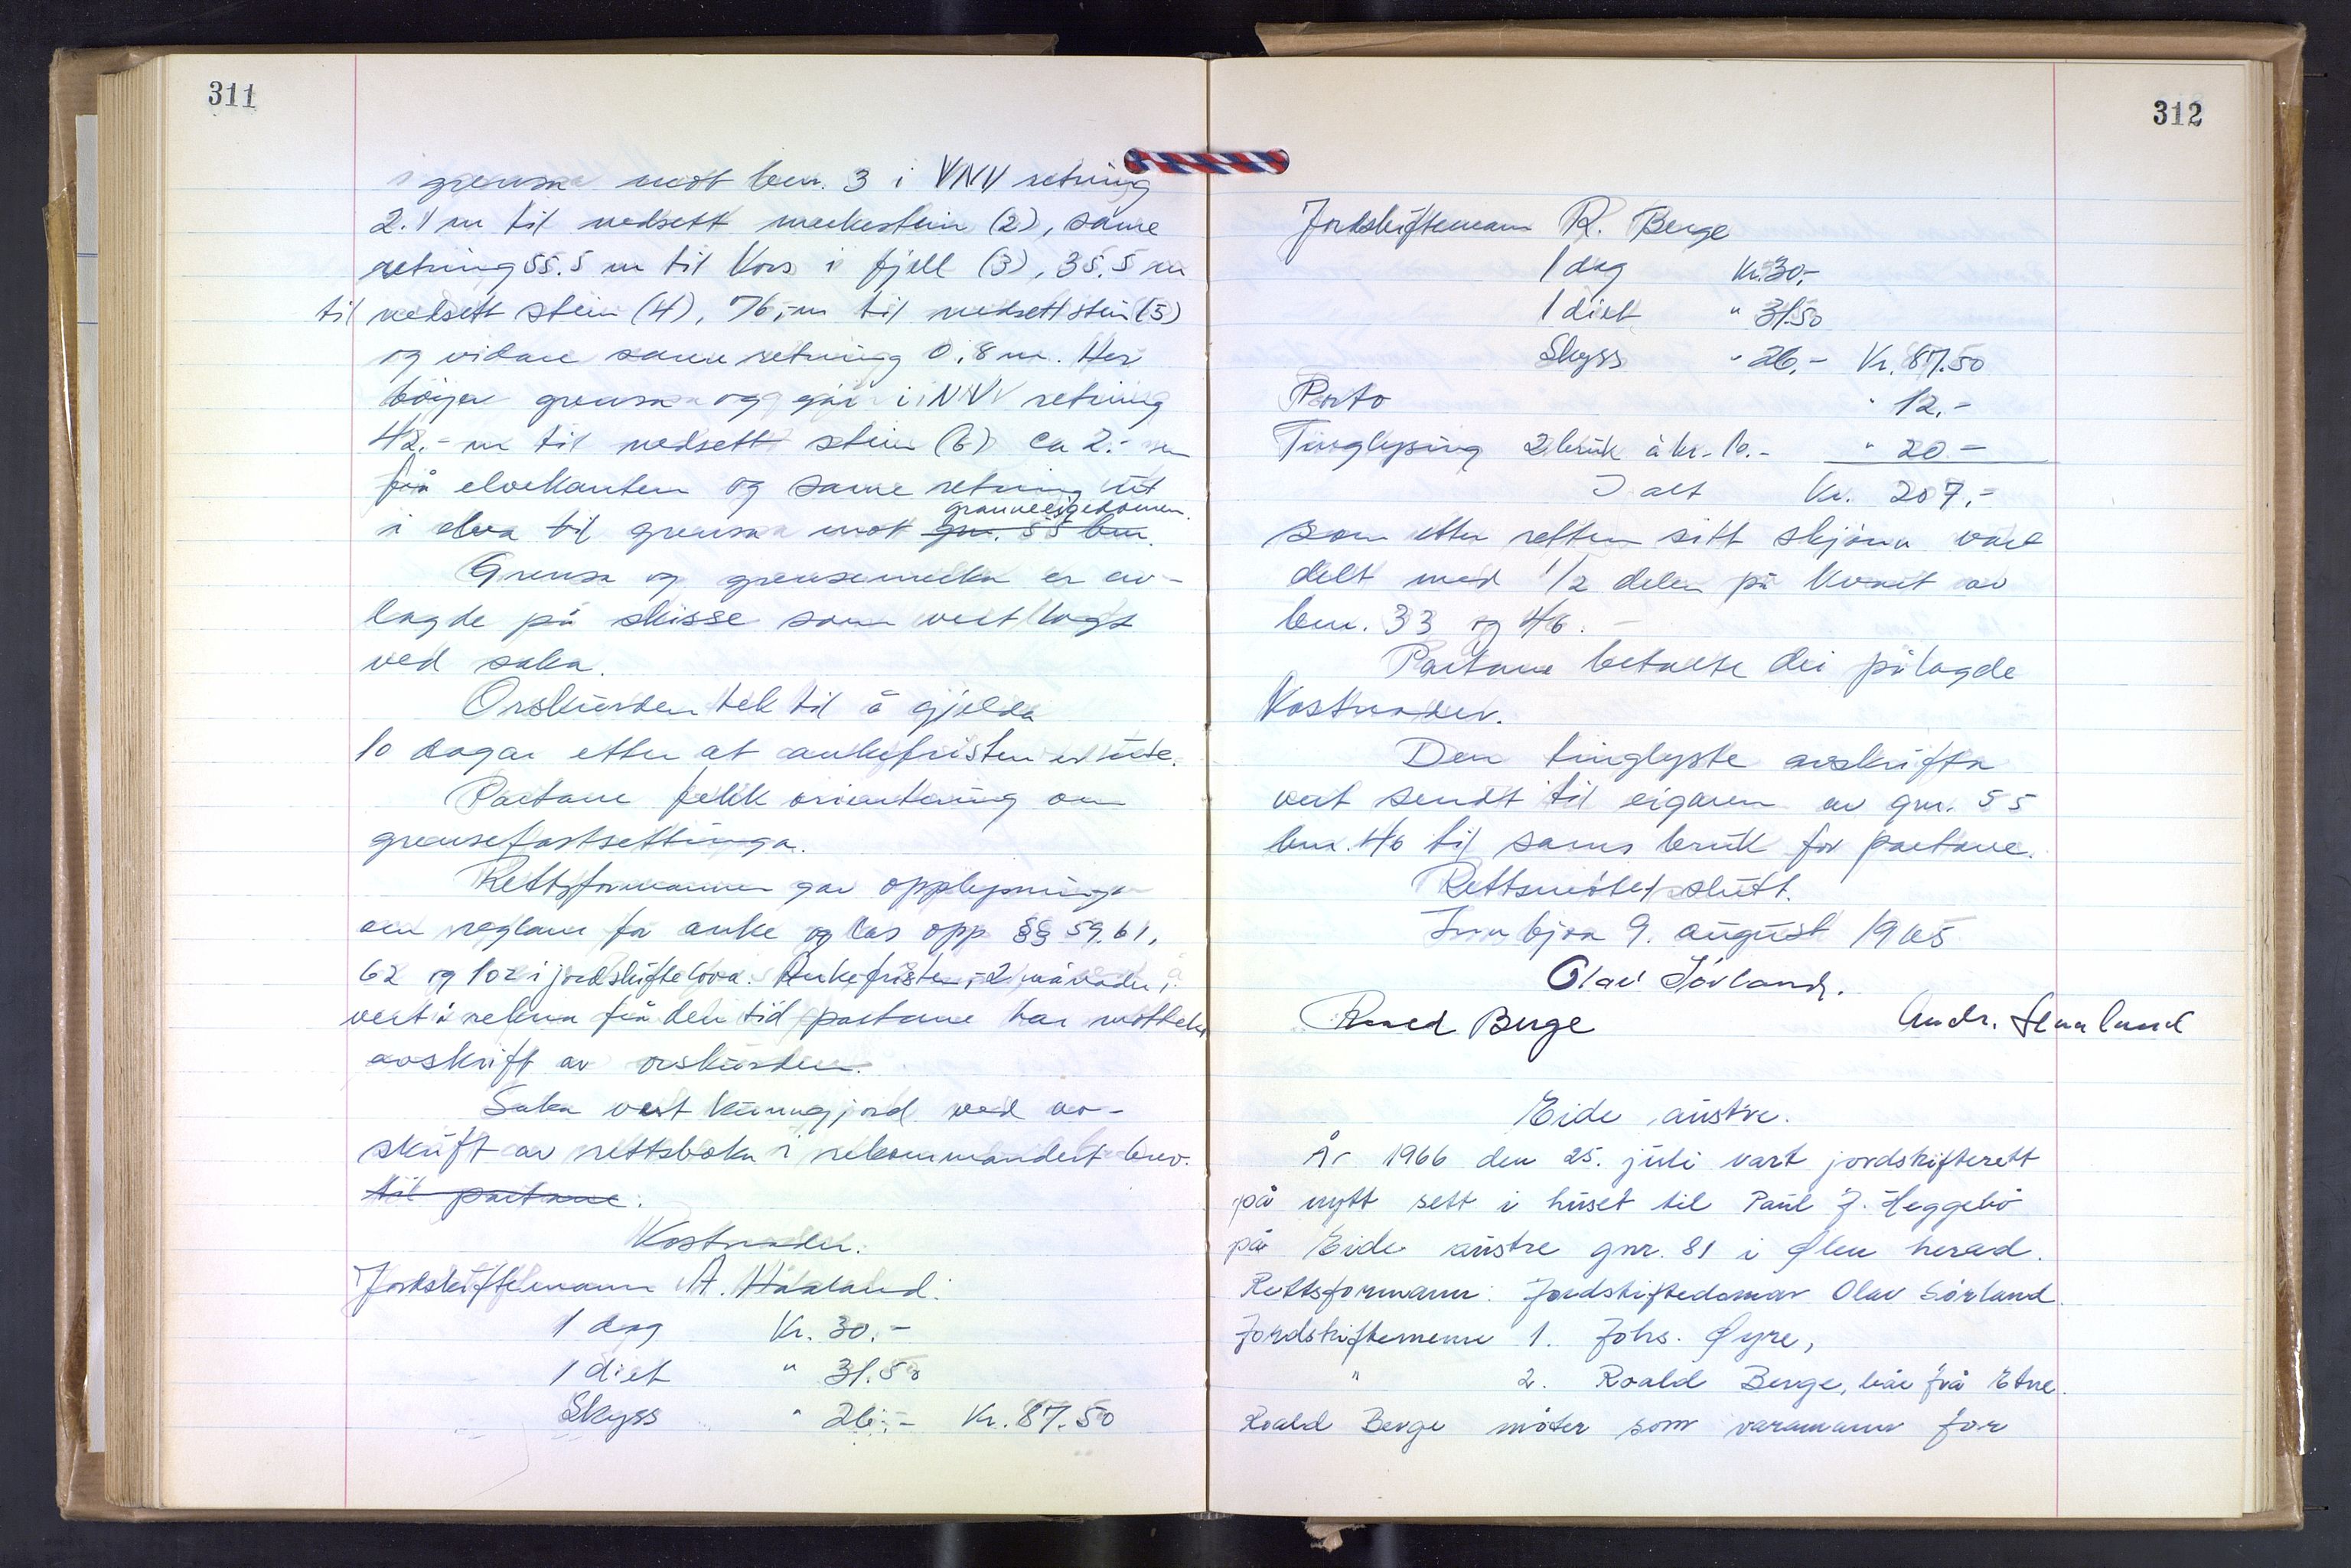 311
i grensa mot bnr. 3 i VNV retning
2.1 m til nedsett merkestein (2), same
retning 55.5 m til Kors i fjell (3), 35.5 m
til nedsett stein (4), 76,- m til nedsett stein (5)
og vidare same retning 0,8 m. Her
bøyer grensa og går i NNV retning
42.- m til nedsett stein (6) ca 2.- m
frå elvekanten og same retning ut
granneeigedomen.
i elva til grensa mot gnr. 55 bnr.
Grensa og grensemerka er av-
lagde på skisse som vert lagt
ved saka.
Orskurden tek til å gjelda
10 dagar etter at ankefristen er ute.
Partane fekk orientering om
grensefastsettinga.
Rettsformannen gav opplysningar
om reglane for anke og las opp §§ 59, 61,
62 og 102 i jordskiftelova. Ankefristen, 2 månader,
vert å rekna frå den tid partane har mottek
avskrift av orskurden.
Saka vert kunngjord ved av-
skrift av rettsboka i rekommandert brev.
til partane.
Kostnader.
Jordskiftemann A. Håland.
1 dag Kr. 30.-
1 diet " 31.50
Skyss " 26.- Kr. 87.50
312
Jordskiftemann R. Berge
1 dag Kr. 30,-
1 diet " 31.50
Skyss " 26,- Kr. 87.50
Porto " 12.-
Tinglysing 2 bruk à kr. 10.- " 20.-
I alt Kr. 207,-
som etter retten sitt skjønn vert
delt med 1/2 delen på kvart av
bnr. 33 og 46.
Partane betalte dei pålagde
Kostnader.
Den tinglyste avskrifta
vert sendt til eigaren av gnr. 55
bnr. 46 til sams bruk for partane.
Rettsmøtet slutt.
9. august 1965
Olav Sørland.
Roald Berge Andr. Haaland
Eide austre.
År 1966 den 25. juli vart jordskifterett
på nytt sett i huset til Paul J. Heggebø
på Eide austre gnr. 81 i Ølen herad.
Rettsformann: Jordskiftedomar Olav Sørland.
Jordskiftemenn 1. Johs. Øyre,
" 2. Roald Berge, båe frå Etne.
Roald Berge møter som varamann for